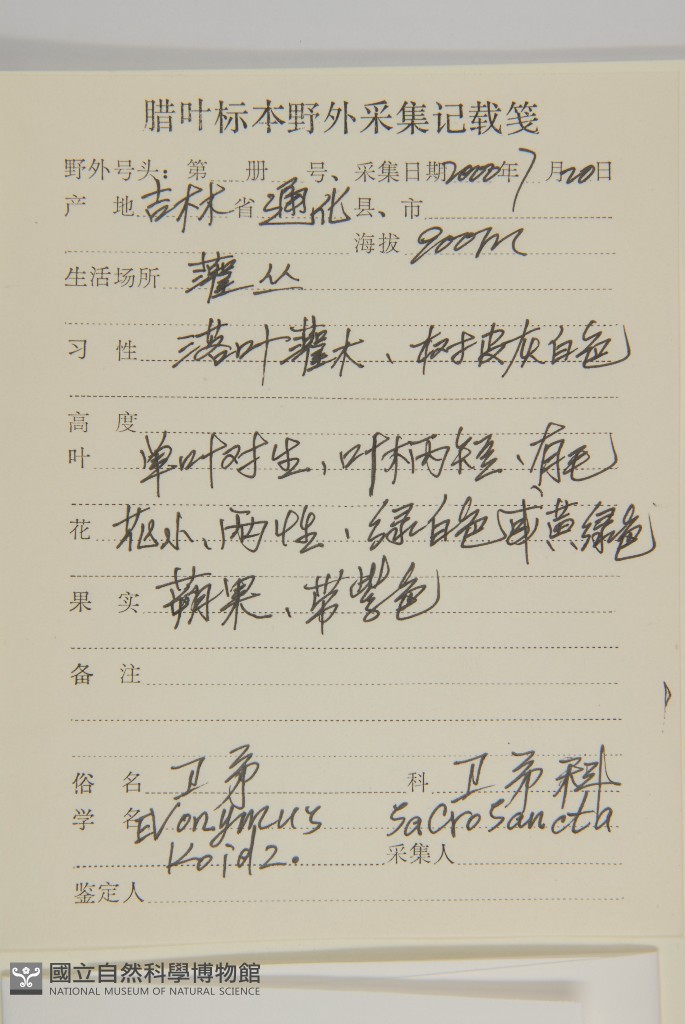 腊叶标本野外采集记载笺
野外号头：第 册 号、采集日期2000年7月20日
产 地 吉林 省 通化 县、市
海拔 900m
生活场所 灌丛
习 性 落叶灌木、树皮灰白色
高 度
叶 单叶对生、叶柄短、有毛
花 花小、两性、绿白色或黄绿色
果 实 蒴果、带紫色
备 注
俗 名 卫矛 科 卫矛科
学 名 Evonymus sacrosancta
Koidz. 采集人
鉴定人
國立自然科學博物館
NATIONAL MUSEUM OF NATURAL SCIENCE